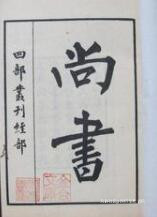 尚書
四部叢刊經部